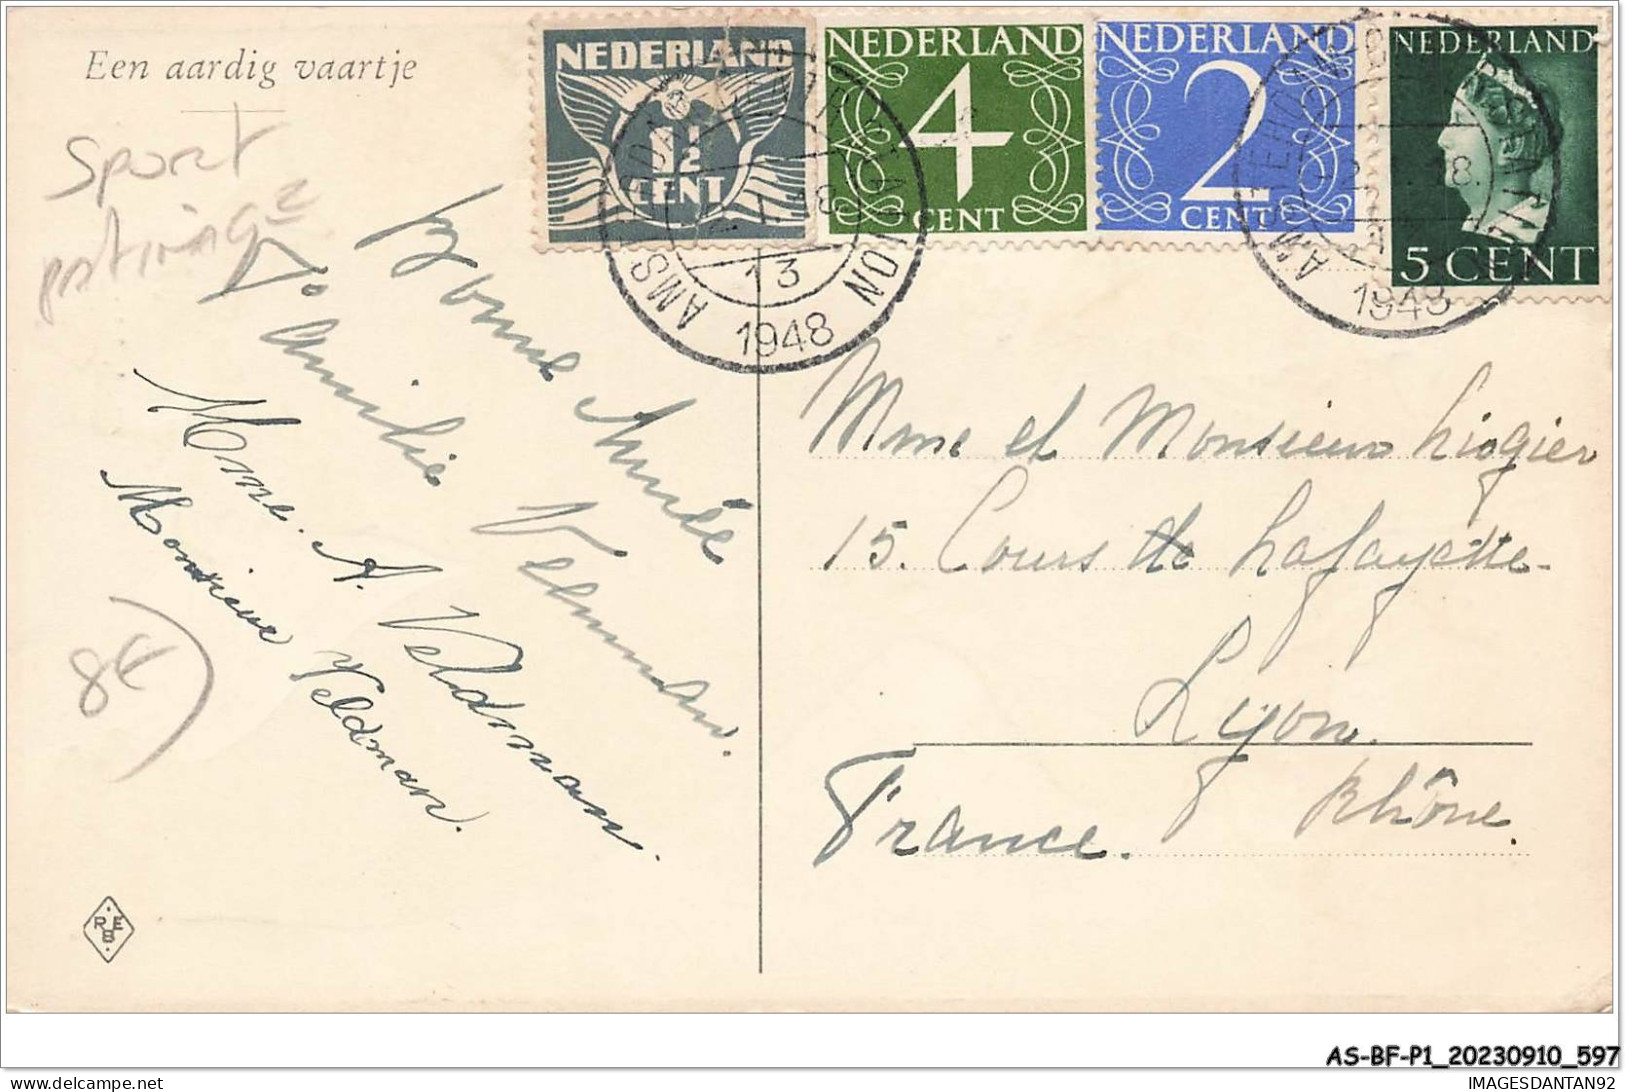 Een aardig vaartje
Sport
patinage
NEDERLAND
1½
CENT
NEDERLAND
4
CENT
NEDERLAND
2
CENT
NEDERLAND
5 CENT
AMSTERDAM CENTRAAL STATION
13
1948
AMSTERDAM CENTRAAL
1948
Bonne Année
Famille Veldman.
Mme. A. Veldman.
Monsieur Veldman.
84
R E B
Mme et Monsieur Liogier
15. Cours de Lafayette-
Lyon.
Rhône.
France.
AS-BF-P1_20230910_597
delcampe.net
IMAGESDANTAN92